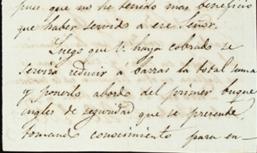 pues que no he tenido mas beneficio
que haber servido a ese Señor.
Luego que U. haya cobrado se
servirá reducir a barras la total suma
y ponerlo abordo del primer buque
ingles de seguridad que se presente,
tomando conocimiento para en